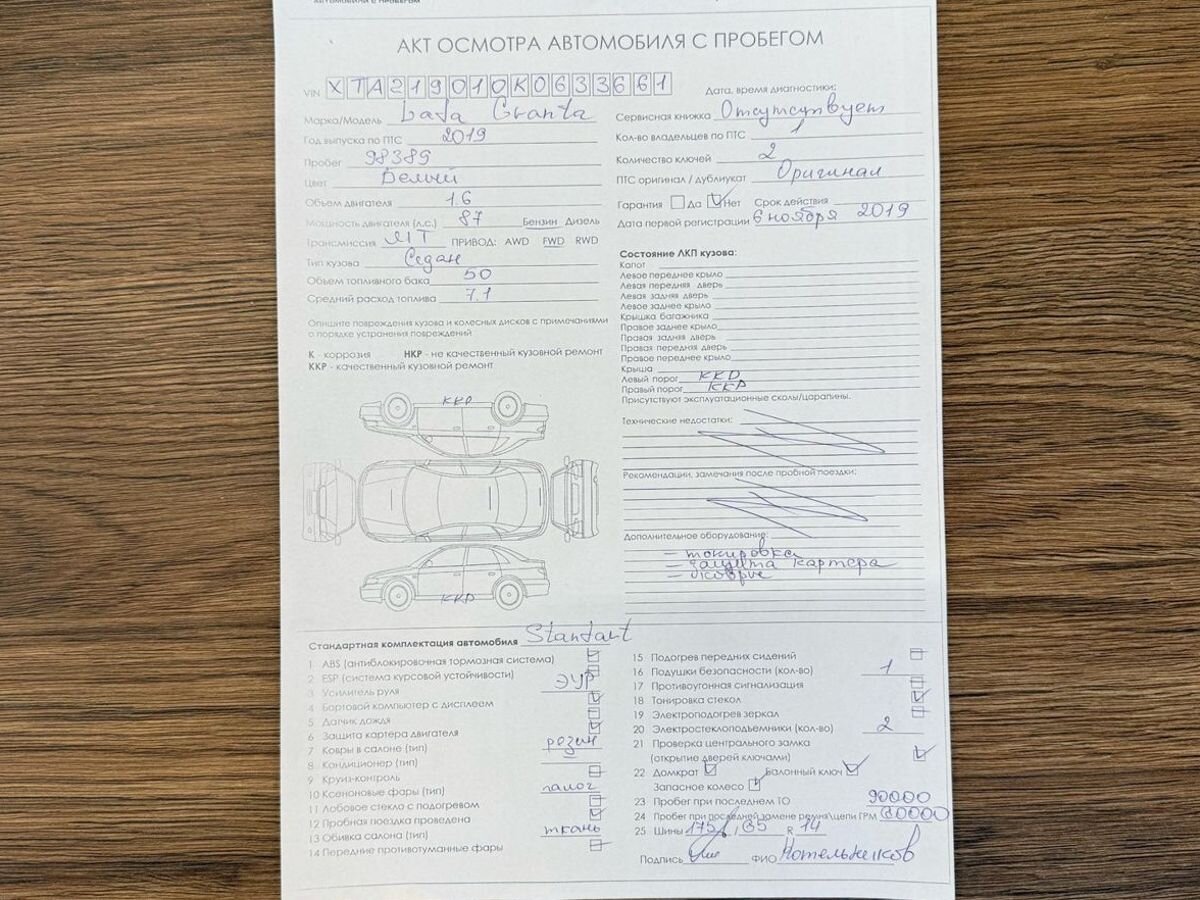 АВТОМОБИЛИ С ПРОБЕГОМ
АКТ ОСМОТРА АВТОМОБИЛЯ С ПРОБЕГОМ
VIN XTA219010K0633661
Дата, время диагностики:
Марка/Модель Lada Granta
Год выпуска по ПТС 2019
Пробег 98389
Цвет Белый
Объем двигателя 1.6
Мощность двигателя (л.с.) 87 Бензин Дизель
Трансмиссия МТ ПРИВОД: AWD FWD RWD
Тип кузова Седан
Объем топливного бака 50
Средний расход топлива 7.1
Сервисная книжка Отсутствует
Кол-во владельцев по ПТС 1
Количество ключей 2
ПТС оригинал / дубликат Оригинал
Гарантия Да Нет Срок действия
Дата первой регистрации 6 ноября 2019
Опишите повреждения кузова и колесных дисков с примечаниями
о порядке устранения повреждений
К - коррозия НКР - не качественный кузовной ремонт
ККР - качественный кузовной ремонт
ККР
ККР
Состояние ЛКП кузова:
Капот
Левое переднее крыло
Левая передняя дверь
Левая задняя дверь
Левое заднее крыло
Крышка багажника
Правое заднее крыло
Правая задняя дверь
Правая передняя дверь
Правое переднее крыло
Крыша
Левый порог ККР
Правый порог ККР
Присутствуют эксплуатационные сколы/царапины.
Технические недостатки:
Рекомендации, замечания после пробной поездки:
Дополнительное оборудование:
- тонировка
- защита картера
- коврие
Стандартная комплектация автомобиля Standart
1 ABS (антиблокировочная тормозная система)
2 ESP (система курсовой устойчивости)
3 Усилитель руля ЭУР
4 Бортовой компьютер с дисплеем
5 Датчик дождя
6 Защита картера двигателя
7 Ковры в салоне (тип) резин
8 Кондиционер (тип) —
9 Круиз-контроль
10 Ксеноновые фары (тип) галог
11 Лобовое стекло с подогревом
12 Пробная поездка проведена
13 Обивка салона (тип) ткань
14 Передние противотуманные фары
15 Подогрев передних сидений
16 Подушки безопасности (кол-во) 1
17 Противоугонная сигнализация
18 Тонировка стекол
19 Электроподогрев зеркал
20 Электростеклоподъемники (кол-во) 2
21 Проверка центрального замка
(открытие дверей ключами)
22 Домкрат Балонный ключ
Запасное колесо
23 Пробег при последнем ТО 90000
24 Пробег при последней замене ремня\цепи ГРМ
25 Шины 175 / 65 R 14
Подпись ФИО Котельников